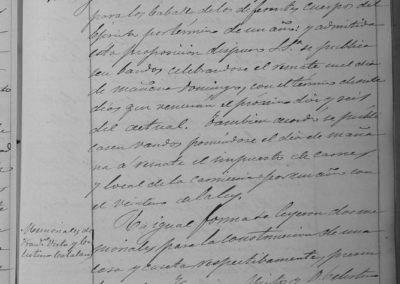 para los Caballos de los diferentes cuerpos del
por término de un año: y admitida
esta proposicion dispuso S.S.ª se publica
sen bandos celebrandose el remate en el dia
de mañana Domingo, con el término de siete
dias que venceran el proximo diez y seis
del actual. Tambien acordó se publi
casen vandos poniendose el dia de maña
na á remate el impuesto de carnes
y local de la carniceria por un año con
el veinteno de la ley.
Memoriales de
De igual forma se leyeron dos me
moriales para la construccion de una
casa y respectibamente, presen
y